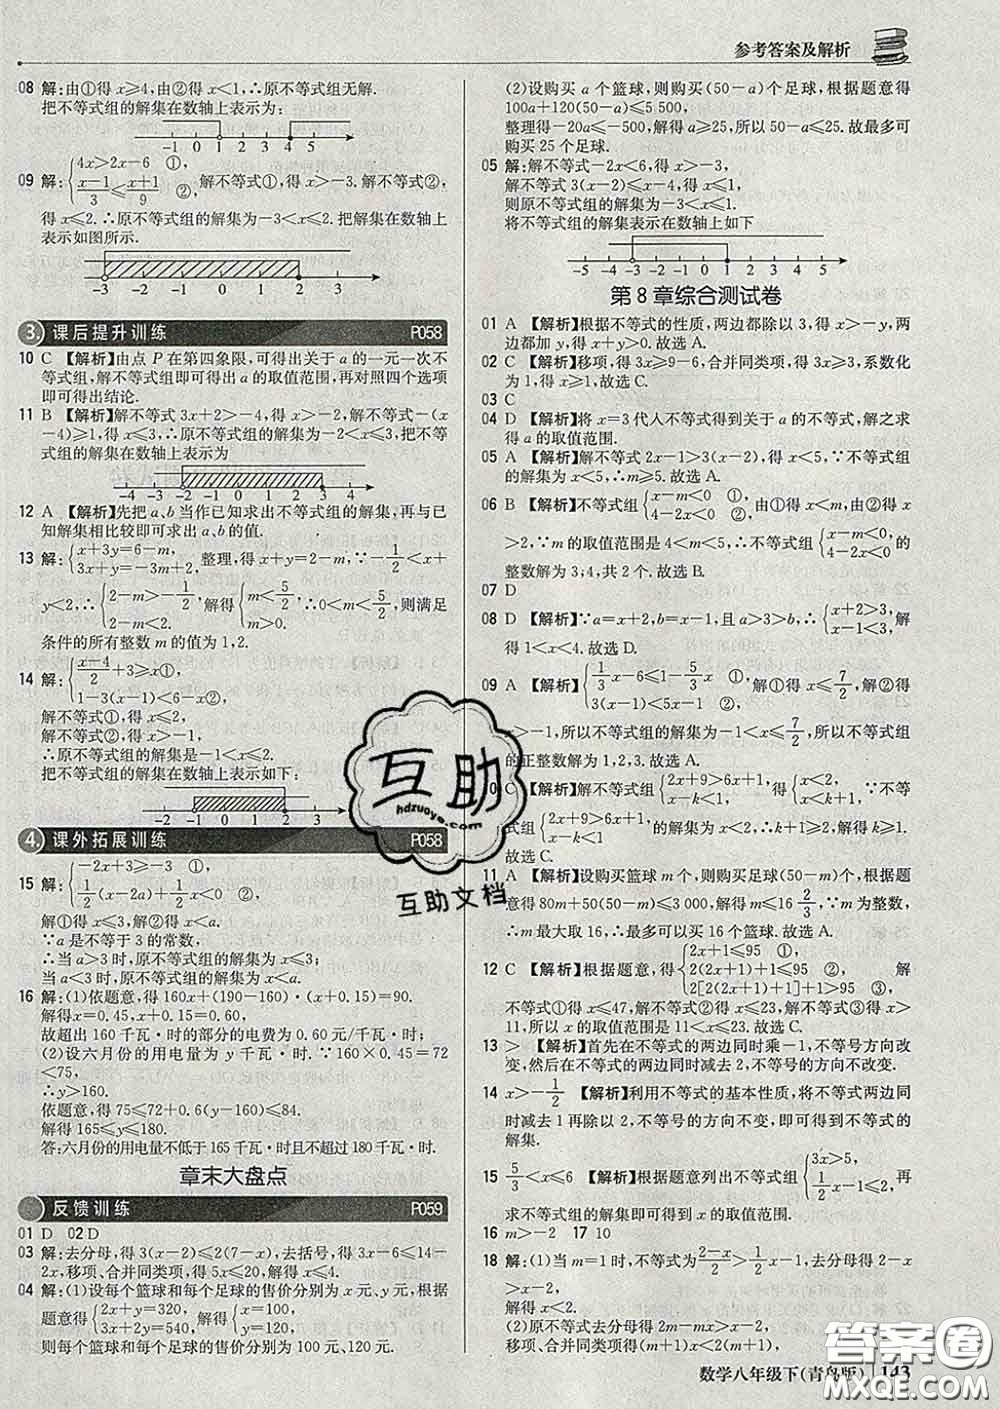 参考答案及解析
08 解:由①得 x≥4,由②得 x<1,∴原不等式组无解.
把不等式组的解集在数轴上表示为:
-1 0 1 2 3 4
09 解:{4x>2x-6 ①,
(x-1)/3≤(x+1)/9 ② 解不等式①,得 x>-3. 解不等式②,
得 x≤2. ∴原不等式组的解集为-3<x≤2. 把解集在数轴上
表示如图所示.
-3 -2 -1 0 1 2 3
3. 课后提升训练 P058
10 C 【解析】由点 P 在第四象限,可得出关于 a 的一元一次不
等式组,解不等式组即可得出 a 的取值范围,再对照四个选项
即可得出结论.
11 B 【解析】解不等式 3x+2>-4,得 x>-2,解不等式-(x
-4)≥1,得 x≤3,∴原不等式组的解集为-2<x≤3,把不等
式组的解集在数轴上表示为
-4 -3 -2 -1 0 1 2 3 4
12 A 【解析】先把 a、b 当作已知求出不等式组的解集,再与已
知解集相比较即可求出 a、b 的值.
13 解:{x+3y=6-m,
3x+y=-3m+2, 整理,得 x+y=2-m,∵-1/2<x+
y<2,∴{2-m>-1/2,
2-m<2. 解得{m<5/2,
m>0. ∴0<m<5/2,则满足
条件的所有整数 m 的值为 1,2.
14 解:{(x-4)/2+3≥x①,
1-3(x-1)<6-x②,
解不等式①,得 x≤2,
解不等式②,得 x>-1,
∴原不等式组的解集是-1<x≤2.
把不等式组的解集在数轴上表示如下:
-2 -1 0 1 2 3
4. 课外拓展训练 P058
15 解:{-2x+3≥-3 ①,
1/2(x-2a)+1/2x<0 ②,
解①得 x≤3,解②得 x<a.
∵a 是不等于 3 的常数,
∴当 a>3 时,原不等式组的解集为 x≤3;
当 a<3 时,原不等式组的解集为 x<a.
16 解:(1)依题意,得 160x+(190-160)·(x+0.15)=90.
解得x=0.45,x+0.15=0.60,
故超出 160 千瓦·时的部分的电费为 0.60 元/千瓦·时;
(2)设六月份的用电量为 y 千瓦·时. ∵160×0.45=72
<75,
∴y>160.
依题意,得 75≤72+0.6(y-160)≤84.
解得 165≤y≤180.
答:六月份的用电量不低于 165 千瓦·时且不超过 180 千瓦·时.
章末大盘点
反馈训练 P059
01 D 02 D
03 解:去分母,得 3(x-2)≤2(7-x),去括号,得 3x-6≤14-
2x,移项、合并同类项,得 5x≤20,解得 x≤4.
04 解:(1)设每个篮球和每个足球的售价分别为 x元、y元,根据
题意得{2x+y=320,
3x+2y=540, 解得{x=100,
y=120,
则每个篮球和每个足球的售价分别为 100 元、120 元.
(2)设购买 a 个篮球,则购买(50-a)个足球,根据题意得
100a+120(50-a)≤5 500,
整理得-20a≤-500,解得 a≥25,所以 50-a≤25. 故最多可
购买 25 个足球.
05 解:解不等式-2x<6,得 x>-3,
解不等式 3(x-2)≤x-4,得 x≤1,
则原不等式组的解集为-3<x≤1,
将不等式组的解集表示在数轴上如下
-5 -4 -3 -2 -1 0 1 2 3 4 5
第 8 章综合测试卷
01 A 【解析】根据不等式的性质,两边都除以 3,得 x>-y,两
边都加 y,得 x+y>0. 故选 A.
02 C 【解析】移项,得 3x≥9-6,合并同类项,得 3x≥3,系数化
为 1,得 x≥1,故选 C.
03 C
04 D 【解析】将 x=3代人不等式得到关于 a 的不等式,解之求
得 a 的取值范围.
05 A 【解析】解不等式 2x-1>3(x-2),得 x<5,∵不等式组
的解集为 x<5,∴m≥5. 故选 A.
06 B 【解析】不等式组{x-m<0 ①,
4-2x<0 ②, 由①得 x<m,由②得 x
>2,∵m 的取值范围是 4<m<5,∴不等式组{x-m<0,
4-2x<0 的
整数解为 3,4,共 2 个. 故选 B.
07 D
08 D 【解析】∵a=x+2,b=x-1,且 a>3>b,∴{x+2>3,
x-1<3, 解
得 1<x<4. 故选 D.
09 A 【解析】{1/3x-6≤1-5/3x ①,
3(x-1)<5x-1 ②, 解①得 x≤7/2,解②得
x>-1,所以不等式组的解集为-1<x≤7/2,所以不等式组
的正整数解为 1,2,3. 故选 A.
10 C 【解析】解不等式组{2x+9>6x+1,
x-k<1, 得{x<2,
x<k+1. ∵不等
式组{2x+9>6x+1,
x-k<1 的解集为 x<2,∴k+1≥2,解得 k≥1.
故选 C.
11 A 【解析】设购买篮球 m 个,则购买足球(50-m)个,根据
题意得 80m+50(50-m)≤3 000,解得 m≤16 2/3,∵m 为整数,
∴m 最大取 16,∴最多可以买 16 个篮球. 故选 A.
12 C 【解析】根据题意,得{2x+1≤95 ①,
2(2x+1)+1≤95 ②,
2[2(2x+1)+1]+1>95 ③, 解
不等式①得 x≤47,解不等式②得 x≤23,解不等式③得 x>
11,所以 x 的取值范围是 11<x≤23. 故选 C.
13 > 【解析】首先在不等式的两边同时乘-1,不等号方向改
变,然后在不等式的两边同时减去 2,不等号的方向不改变.
14 x>-1/2 【解析】利用不等式的基本性质,将不等式两边同
时减去1 再除以 2,不等号的方向不变,即可得到不等式的
解集.
15 5/3<x≤6 【解析】根据题意列出不等式组{3x>5,
1/2x-1≤2, 再
求不等式组的解集即可得到 x 的取值范围.
16 m>-2 17 10
18 解:(1)当 m=1 时,不等式为(2-x)/2>1/2x-1,去分母得 2-x
>x-2,
解得 x<2.
(2)原不等式去分母得 2m-mx>x-2,
移项、合并同类项得(m+1)x<2(m+1),
数学八年级下(青岛版) 143
互助
hdzuoye.com
互助文档
答案圈
MXQE.COM